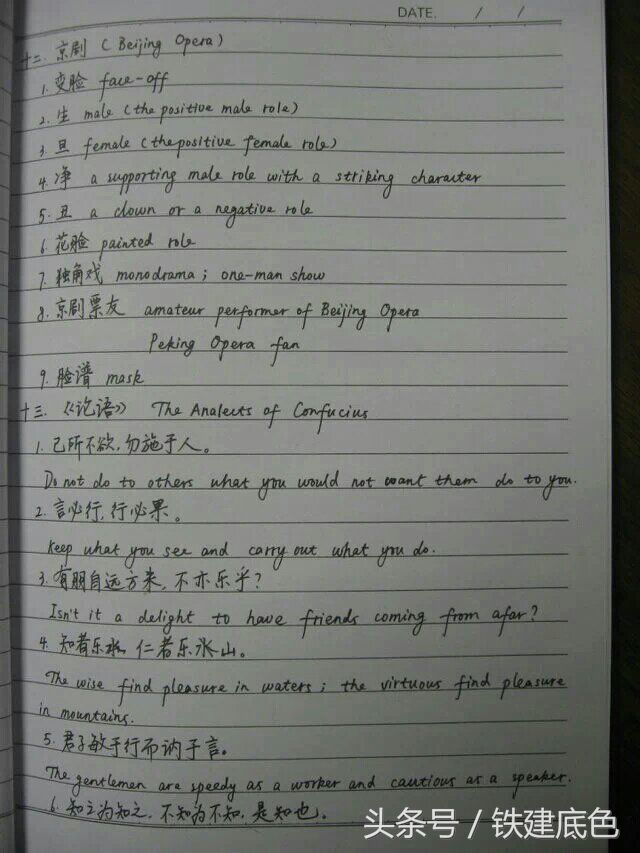 DATE. / /
十二. 京剧 (Beijing Opera)
1. 变脸 face-off
2. 生 male (the positive male role)
3. 旦 female (the positive female role)
4. 净 a supporting male role with a striking character
5. 丑 a clown or a negative role
6. 花脸 painted role
7. 独角戏 monodrama; one-man show
8. 京剧票友 amateur performer of Beijing Opera
Peking Opera fan
9. 脸谱 mask
十三. 《论语》 The Analects of Confucius
1. 己所不欲,勿施于人。
Do not do to others what you would not want them do to you.
2. 言必行,行必果。
Keep what you see and carry out what you do.
3. 有朋自远方来,不亦乐乎?
Isn't it a delight to have friends coming from afar?
4. 知者乐水,仁者乐山。
The wise find pleasure in waters; the virtuous find pleasure
in mountains.
5. 君子敏于行而讷于言。
The gentlemen are speedy as a worker and cautious as a speaker.
6. 知之为知之,不知为不知,是知也。
头条号 / 铁建底色